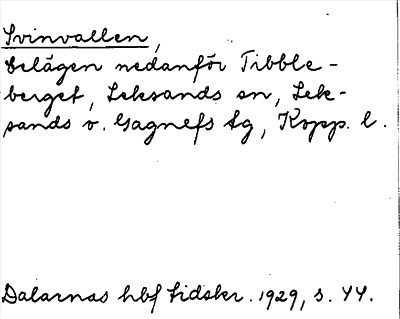 Svinvallen,
belägen nedanför Tibble-
berget, Leksands sn, Lek-
sands o. Gagnefs tg, Kopp. l.
Dalarnas hbf tidskr. 1929, s. 44.